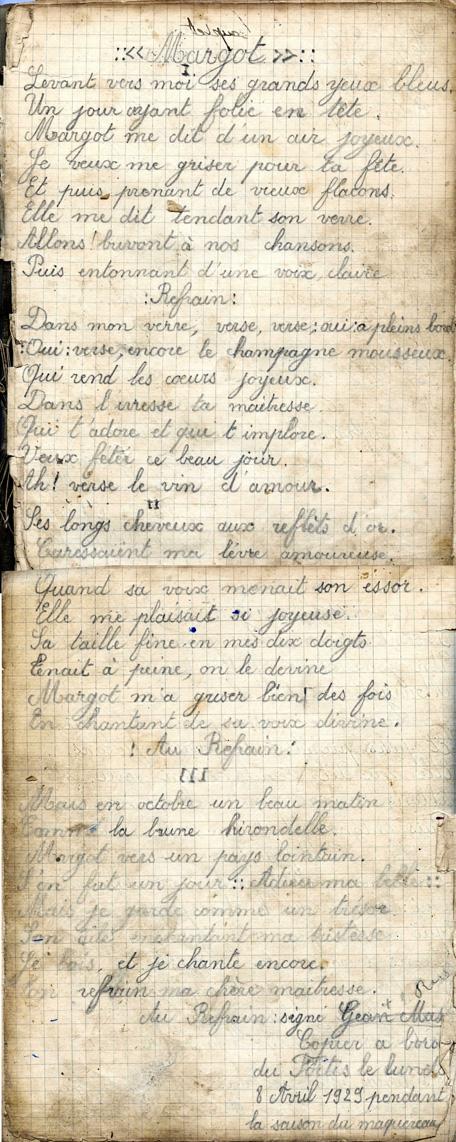 ::<< Margot >>::
I.
Levant vers moi ses grands yeux bleus.
Un jour ayant folie en tête.
Margot me dit d'un air joyeux.
Je veux me griser pour ta fête.
Et puis prenant de vieux flacons.
Elle me dit tendant son verre.
Allons! buvont à nos chansons.
Puis entonnant d'une voix claire
:Refrain:
Dans mon verre, verse, verse; oui: à pleins bord
:Oui: verse, encore le champagne mousseux.
Qui rend les cœurs joyeux.
Dans l'ivresse ta maitresse.
Qui t'adore et qui t'implore.
Veux fêter ce beau jour.
Ah! verse le vin d'amour.
II
Ses longs cheveux aux reflets d'or.
Caressaient ma lèvre amoureuse.
Quand sa voix menait son essor.
Elle me plaisait si joyeuse.
Sa taille fine en mes dix doigts
Tenait à peine, on le devine
Margot m'a griser bien des fois
En chantant de sa voix divine.
! Au Refrain!
III
Mais en octobre un beau matin
la brune hirondelle.
Margot vers un pays lointain.
S'en fut un jour :: Adieu ma belle ::
Mais je garde comme un trésor
ma tristesse
Je bois et je chante encore.
refrain ma chère maitresse.
Au Refrain: signe Gean Mat
Copier a bord
du le lundi
8 Avril 1929 pendant
la saison du maquereau